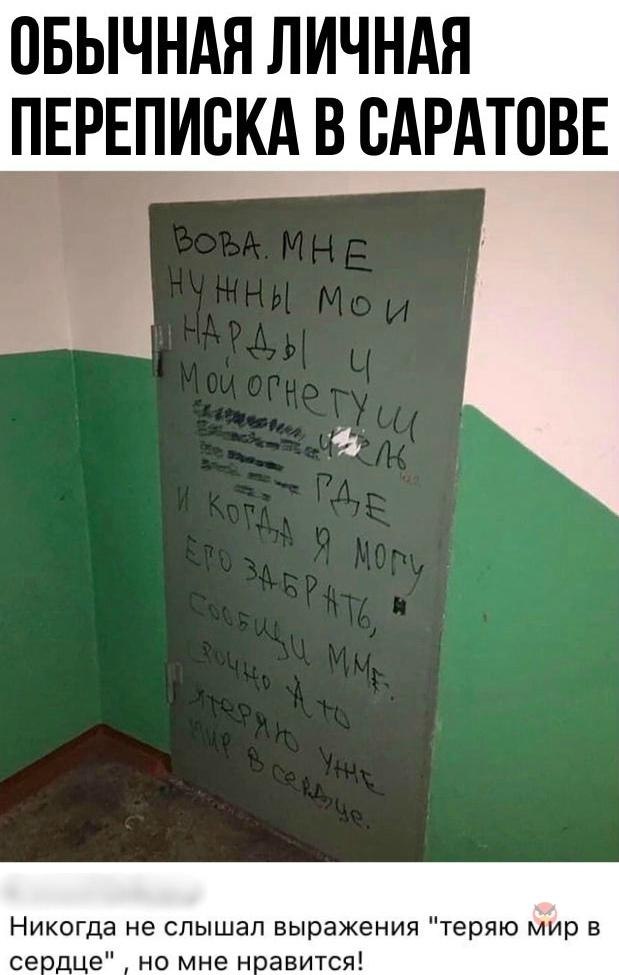 ОБЫЧНАЯ ЛИЧНАЯ
ПЕРЕПИСКА В САРАТОВЕ
ВОВА. МНЕ
НУЖНЫ МОИ
НАРДЫ И
МОЙ ОГНЕТУШ
ИТЕЛЬ
ГДЕ
И КОГДА Я МОГУ
ЕГО ЗАБРАТЬ,
СООБЩИ МНЕ.
СРОЧНО А ТО
Я ТЕРЯЮ УЖЕ
МИР В СЕРДЦЕ.
Никогда не слышал выражения "теряю мир в
сердце" , но мне нравится!